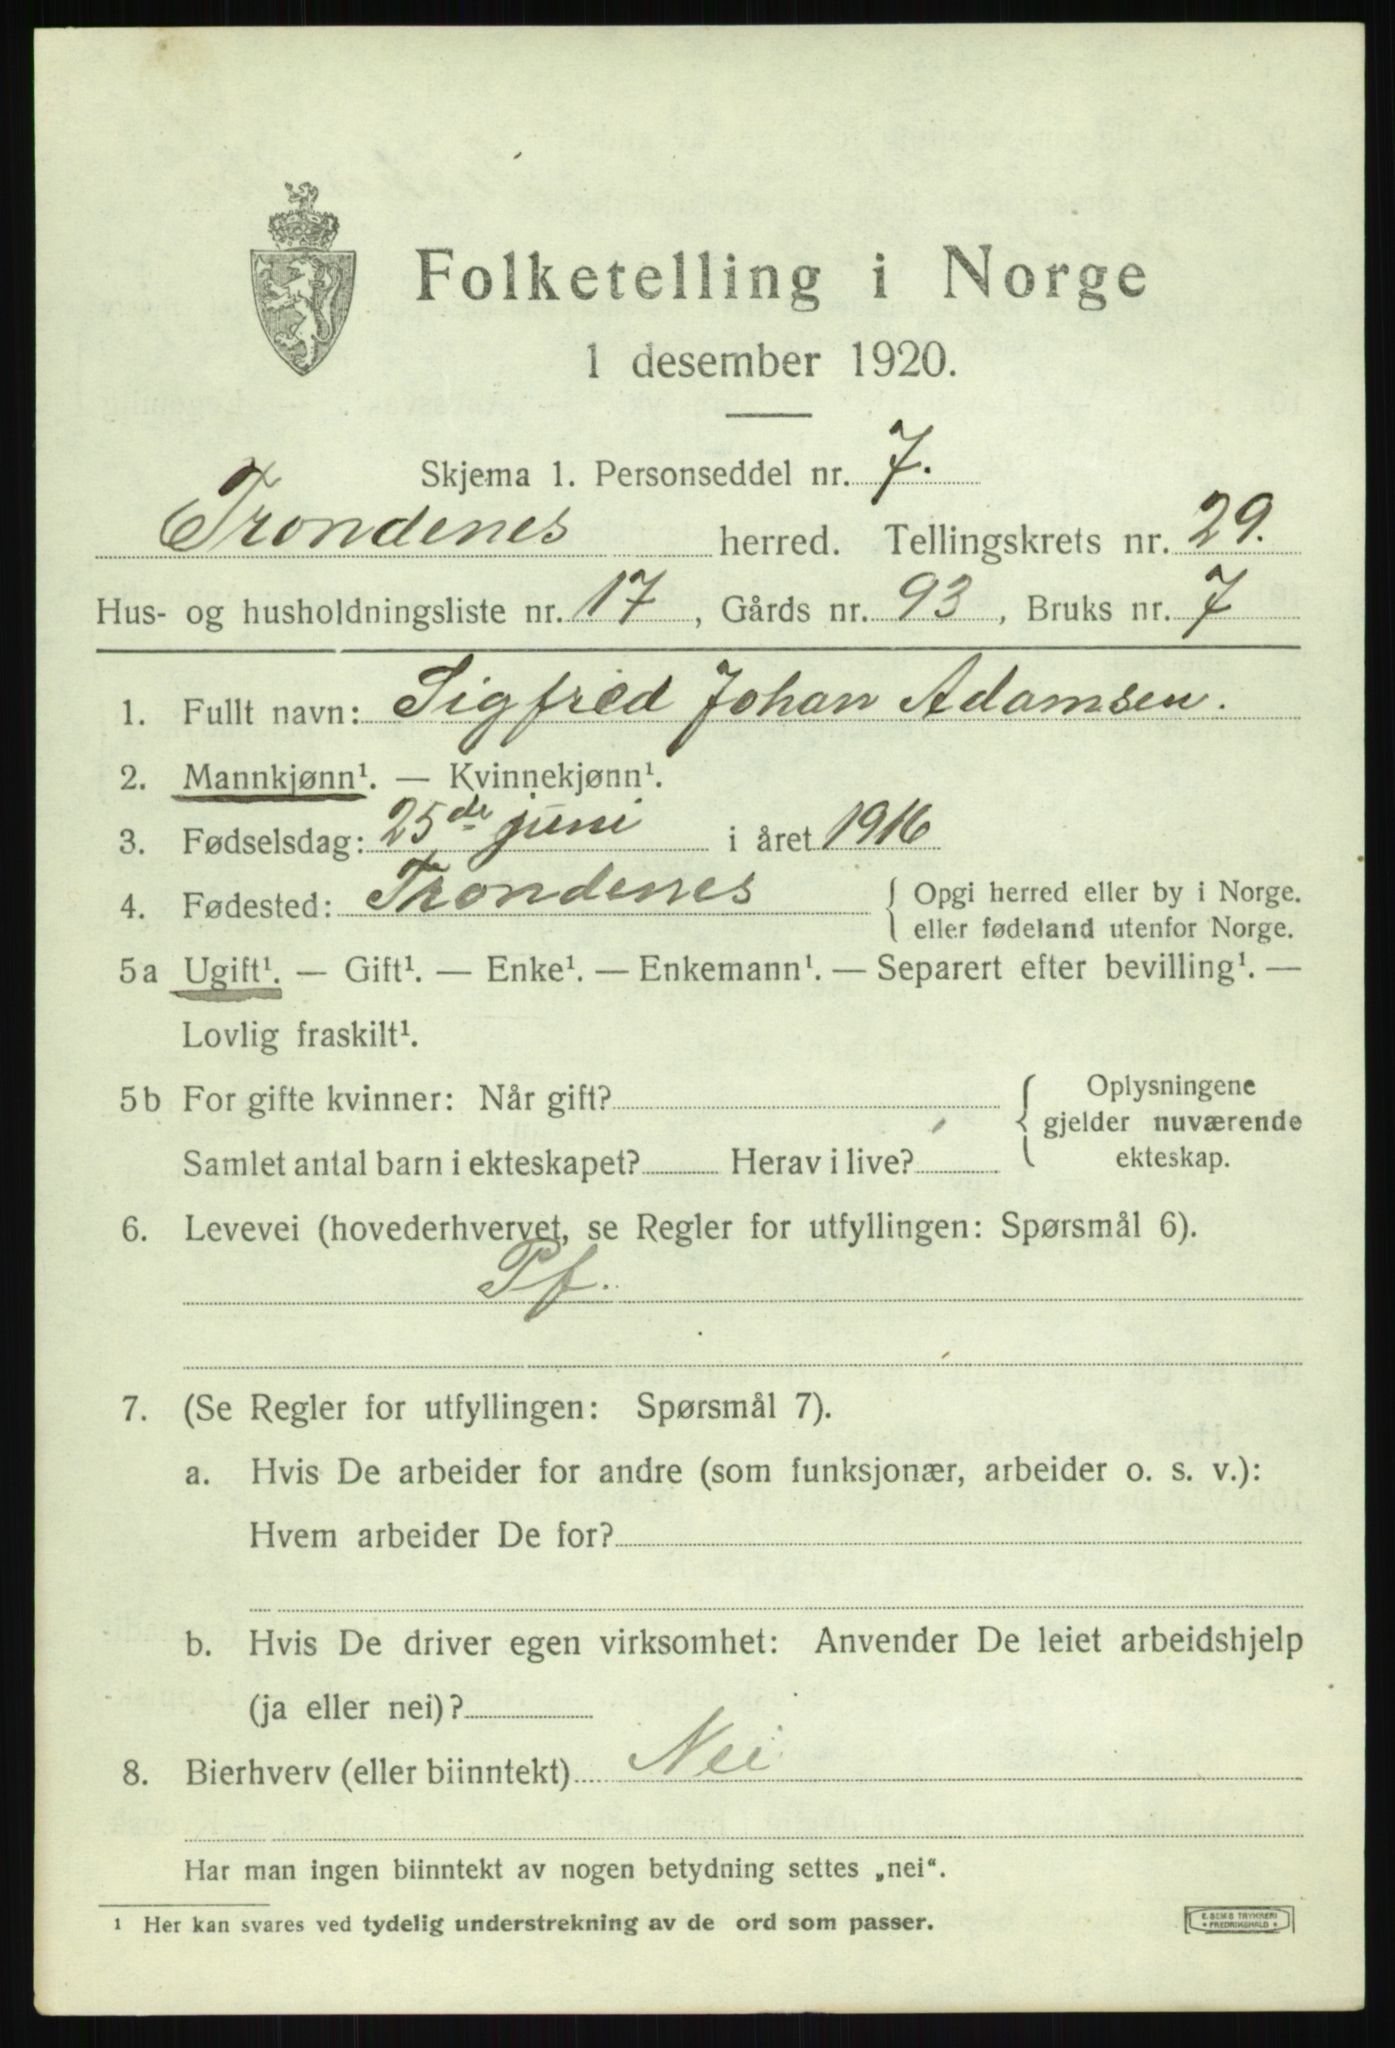 Folketelling i Norge
1 desember 1920.
Skjema 1. Personseddel nr. 7.
Trondenes herred. Tellingskrets nr. 29.
Hus- og husholdningsliste nr. 17, Gårds nr. 93, Bruks nr. 7
1. Fullt navn: Sigfred Johan Adamsen.
2. Mannkjønn¹. — Kvinnekjønn¹.
3. Fødselsdag: 25de juni i året 1916
4. Fødested: Trondenes { Opgi herred eller by i Norge.
eller fødeland utenfor Norge.
5a Ugift¹. — Gift¹. — Enke¹. — Enkemann¹. — Separert efter bevilling¹. —
Lovlig fraskilt¹.
5b For gifte kvinner: Når gift? { Oplysningene
gjelder nuværende
Samlet antal barn i ekteskapet? Herav i live? ekteskap.
6. Levevei (hovederhvervet, se Regler for utfyllingen: Spørsmål 6).
Pf.
7. (Se Regler for utfyllingen: Spørsmål 7).
a. Hvis De arbeider for andre (som funksjonær, arbeider o. s. v.):
Hvem arbeider De for?
b. Hvis De driver egen virksomhet: Anvender De leiet arbeidshjelp
(ja eller nei)?
8. Bierhverv (eller biinntekt) Nei
Har man ingen biinntekt av nogen betydning settes „nei“.
¹ Her kan svares ved tydelig understrekning av de ord som passer.
E. SEMS TRYKKERI
• FREDRIKSHALD •